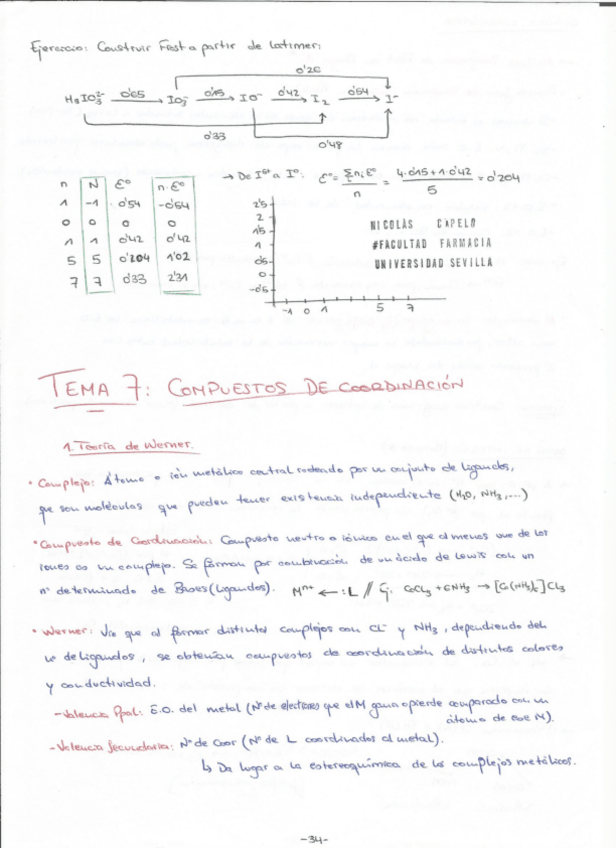 Ejercicio: Construir Frost a partir de Latimer:
0'26
H₄IO₃²⁻ 0'65 IO₃⁻ 0'15 IO⁻ 0'42 I₂ 0'54 I⁻
0'33
0'48
n N Ɛ° n·Ɛ°
1 -1 0'54 -0'54
0 0 0 0
1 1 0'42 0'42
5 5 0'204 1'02
7 7 0'33 2'31
→ De I⁵⁺ a I°: Ɛ° = Σnᵢ Ɛ° / n = 4·0'15 + 1·0'42 / 5 = 0'204
2'5
2
1'5
1
0'5
0
-0'5
-1 0 1 5 7
NICOLÁS CAPELO
#FACULTAD FARMACIA
UNIVERSIDAD SEVILLA
TEMA 7: COMPUESTOS DE COORDINACIÓN
1. Teoría de Werner.
• Complejo: Átomo o ión metálico central rodeado por un conjunto de ligandos,
que son moléculas que pueden tener existencia independiente (H₂O, NH₃,...)
• Compuesto de Coordinación: Compuesto neutro o iónico en el que al menos uno de los
iones es un complejo. Se forman por combinación de un ácido de Lewis con un
nº determinado de Bases (Ligandos). Mⁿ⁺ ← :L // Ej. CoCl₃ + 6NH₃ → [Co(NH₃)₆]Cl₃
• Werner: Vio que al formar distintos complejos con Cl⁻ y NH₃, dependiendo del
nº de ligandos, se obtenían compuestos de coordinación de distintos colores
y conductividad.
- Valencia Ppal: E.O. del metal (Nº de electrones que el M gana o pierde comparado con un
átomo de ese M).
- Valencia Secundaria: Nº de Coor (Nº de L coordinados al metal).
↳ Da lugar a la estereoquímica de los complejos metálicos.
-34-